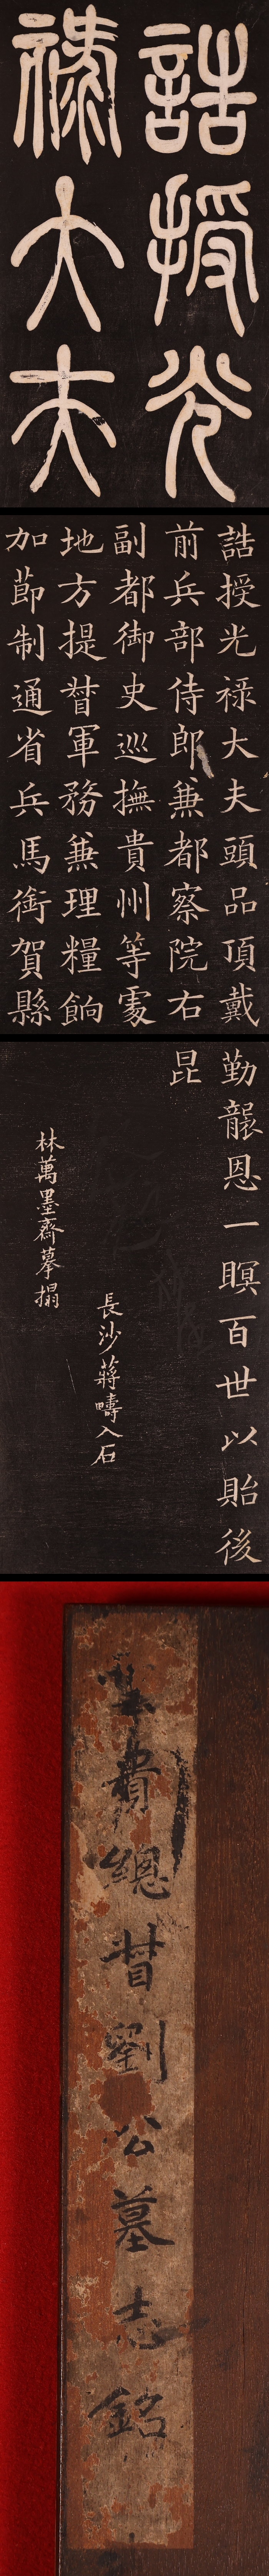 誥授光
祿大夫
誥授光祿大夫頭品頂戴
前兵部侍郎兼都察院右
副都御史巡撫貴州等處
地方提督軍務兼理糧餉
加節制通省兵馬銜賀縣
勤龍恩一瞑百世以貽後
昆
長沙蔣疇入石
林萬墨齋摹搨
貴總督劉公墓志銘